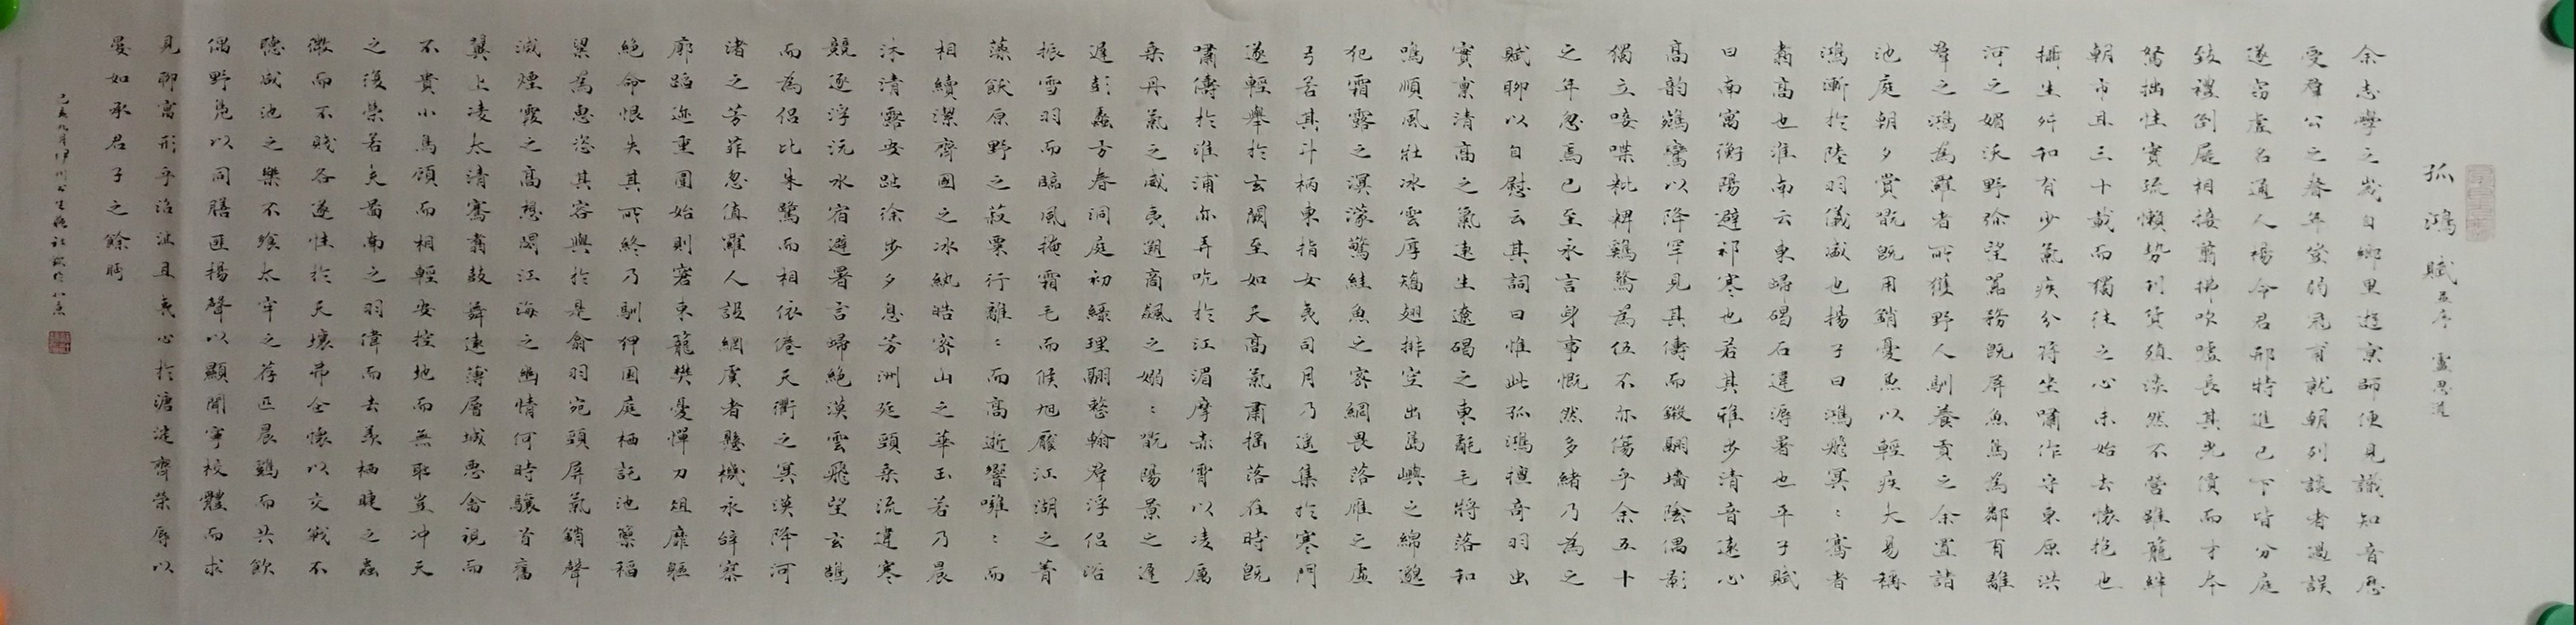 孤鴻賦並序 盧思道
余志學之歲自鄉里遊京師便見識知音歷
受群公之眷年登弱冠甫就朝列談者過誤
遂竊虛名通人楊令君邢特進已下皆分庭
致禮倒屣相接翦拂吹噓長其光價而才本
駑拙性實疏懶勢利貨殖淡然不營雖籠絆
朝市且三十載而獨往之心未始去懷抱也
攝生舛和有少氣疾分符坐嘯作守東原洪
河之湄沃野彌望囂務既屏魚鳥為鄰有離
群之鴻為羅者所獲野人馴養貢之余置諸
池庭朝夕賞翫既用銷憂兼以輕疾大易稱
鴻漸於陸羽儀盛也揚子曰鴻飛冥〻騫者
翥高也淮南云東歸碣石違溽暑也平子賦
曰南寓衡陽避祁寒也若其雅步清音遠心
高韻鵷鸞以降罕見其儔而鎩翮墻陰偶影
獨立唼喋粃稗雞鶩為伍不亦傷乎余五十
之年忽焉已至永言身事慨然多緒乃為之
賦聊以自慰云其詞曰惟此孤鴻擅奇羽出
實稟清高之氣遠生遼碣之東氄毛將落和
鳴順風壯冰雲厚矯翅排空出島嶼之綿邈
犯霜露之溟濛驚絓魚之密網畏落雁之虛
弓若其斗柄東指女夷司月乃遙集於寒門
遂輕舉於玄闕至如天高氣肅搖落在時既
嘯儔於淮浦亦弄吭於江湄摩赤霄以凌厲
乘丹氣之威夷遡商飆之嫋〻翫陽景之遲
遲彭蠡方春洞庭初綠理翮整翰群浮侶浴
振雪羽而臨風掩霜毛而候旭饜江湖之菁
藻飫原野之菽粟行離〻而高逝響噰〻而
相續潔齊國之冰紈皓密山之華玉若乃晨
沐清露安趾徐步夕息芳洲延頸乘流違寒
競逐浮沅水宿避暑言歸絕漠雲飛望玄鵠
而為侶比朱鷺而相依倦天衢之冥漠降河
渚之芳菲忽值羅人設網虞者懸機永辭寥
廓蹈跡重圍始則窘束籠樊憂憚刀俎靡軀
絕命恨失其所終乃馴狎園庭栖託池籞稻
粱為惠恣其容與於是翕羽宛頸屏氣銷聲
滅煙霞之高想悶江海之幽情何時驤首奮
翼上凌太清騫翥鼓舞遠薄層城惡禽視而
不貴小鳥顧而相輕安控地而無恥豈沖天
之復榮若夫圖南之羽偉而去羨栖睫之蟲
微而不賤各遂性於天壤弗企懷以交戰不
聽咸池之樂不饗太牢之荐匹晨雞而共飲
偶野鳧以同膳匪揚聲以顯聞寧校體而求
見聊寓形乎沼沚且夷心於溏洫齊榮辱以
晏如承君子之餘眄
己亥九月伊川